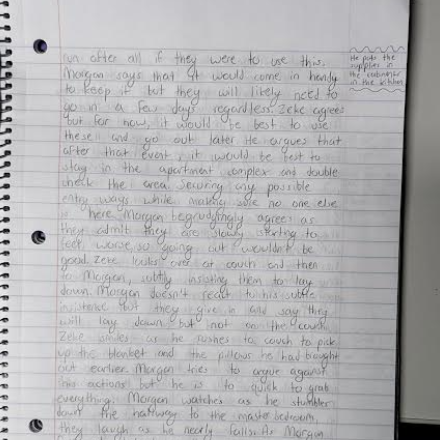 run after all if they were to use this.
Morgan says that it would come in handy
to keep it but they will likely need to
go in a few days regardless. Zeke agrees
but for now, it would be best to use
these and go out later. He argues that
after that event, it would be best to
stay in the apartment complex and double
check the area. Securing any possible
entry ways while making sure no one else
is here. Morgan begrudgingly agrees as
they admit they are slowly starting to
feel worse, so going out wouldn't be
good. Zeke looks over at couch and then
to Morgan, subtly insisting them to lay
down. Morgan doesn't react to his subtle
insistence that they give in and say they
will lay down but not on the couch.
Zeke smiles as he rushes to couch to pick
up the blanket and the pillows he had bought
out earlier. Morgan tries to argue against
his actions but he is to quick to grab
everything. Morgan watches as he stumbles
down the hallway to the master bedroom,
they laugh as he nearly falls. As Morgan
He puts the
supplies in
the
in the kitchen